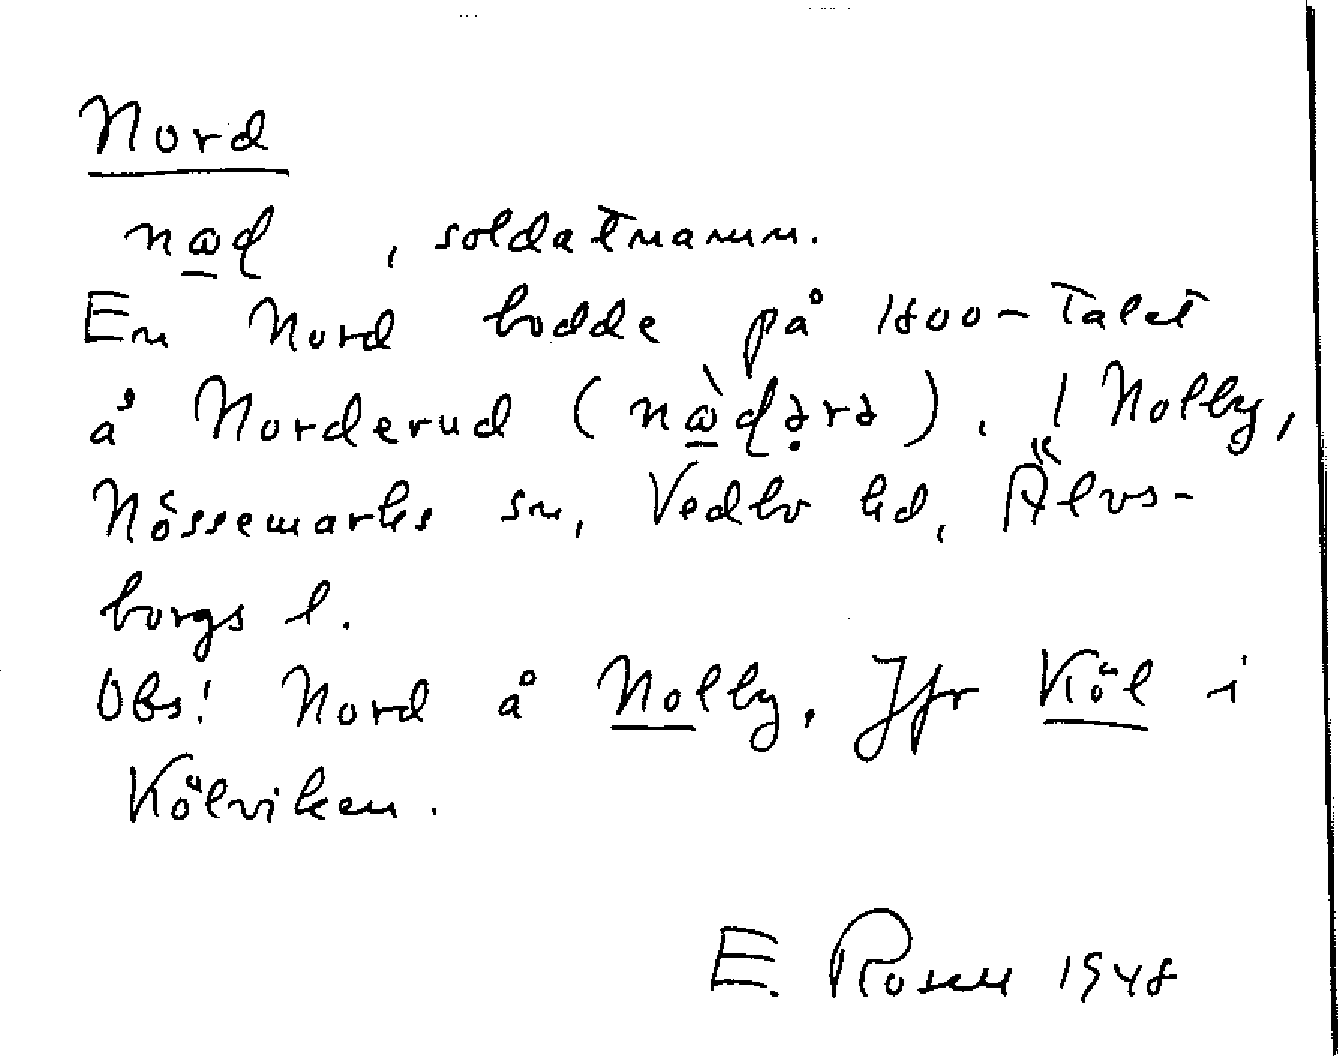 Nord
nɷɖ , soldatnamn.
En Nord bodde på 1800-talet
å Norderud (nɷ̀ɖərə). / Nolby,
Nössemarks sn, Vedbo hd, Älvs-
borgs l.
Obs! Nord å Nolby. Jfr Köl i
Kölviken.
E. Rosell 1948